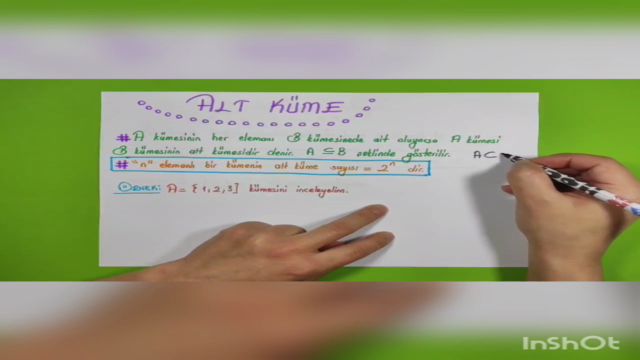 ALT KÜME
# A kümesinin her elemanı B kümesinede ait oluyorsa A kümesi
B kümesinin alt kümesidir denir. A ⊆ B şeklinde gösterilir. A C
# "n" elemanlı bir kümenin alt küme sayısı = 2ⁿ dir.
ÖRNEK: A = {1, 2, 3} kümesini inceleyelim.
InShOt